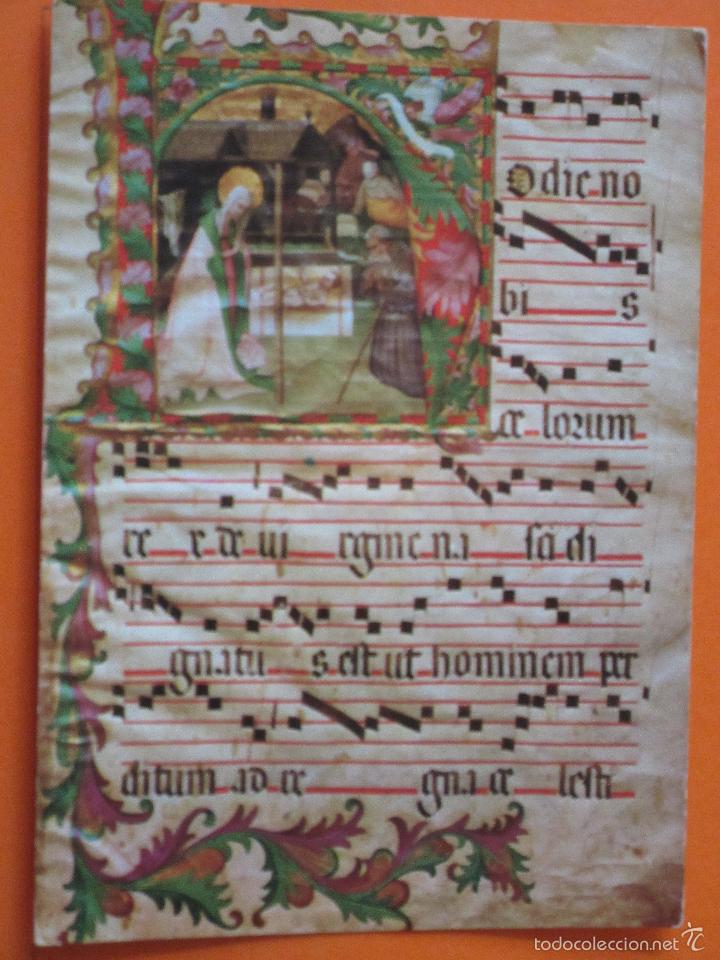 Odie no
bi s
ce lorum
re x de ui rgine na sci di
gnatu s est ut hominem per
ditum ad re gna ce lesti
todocoleccion.net